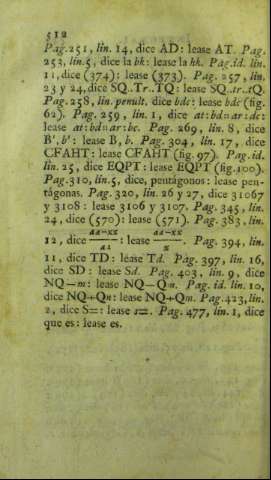 512
Pag.251, lin. 14, dice AD: lease AT. Pag.
253, lin.5, dice la bk: lease la hk. Pag.id. lin.
11, dice (374): lease (373). Pag. 257, lin.
23 y 24, dice SQ..Tr..TQ: lease SQ..tr..tQ.
Pag. 258, lin. penult. dice bdc: lease bdc (fig.
62). Pag. 259, lin. 1, dice at:bd::ar:dc:
lease at:bd::ar:bc. Pag. 269, lin. 8, dice
B', b': lease B, b. Pag. 304, lin. 17, dice
CFAHT: lease CFAHT (fig. 97). Pag.id.
lin. 25, dice EQPT: lease EQPT (fig.100).
Pag.310, lin.5, dice, pentágonos: lease pen-
tágonas. Pag. 320, lin. 26 y 27, dice 31067
y 3108: lease 3106 y 3107. Pag. 345, lin.
24, dice (570): lease (571). Pag. 383, lin.
12, dice aa-xx/a2: lease aa-xx/x. Pag. 394, lin.
11, dice TD: lease Td. Pag. 397, lin. 16,
dice SD: lease Sd. Pag. 403, lin. 9, dice
NQ—m: lease NQ—Qm. Pag. id. lin. 10,
dice NQ+Qn: lease NQ+Qm. Pag.423, lin.
2, dice S=: lease s=. Pag. 477, lin. 1, dice
que es: lease es.